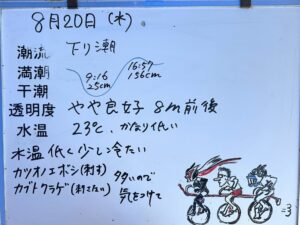 8月20日(水)
潮流 下り潮
満潮 16:57 156cm
干潮 9:16 25cm
透明度 やや良好 8m前後
水温 23℃、かなり低い
水温低く少し冷たい
カツオノエボシ(刺す) 多いので
カブトクラゲ(刺さない) 気をつけて